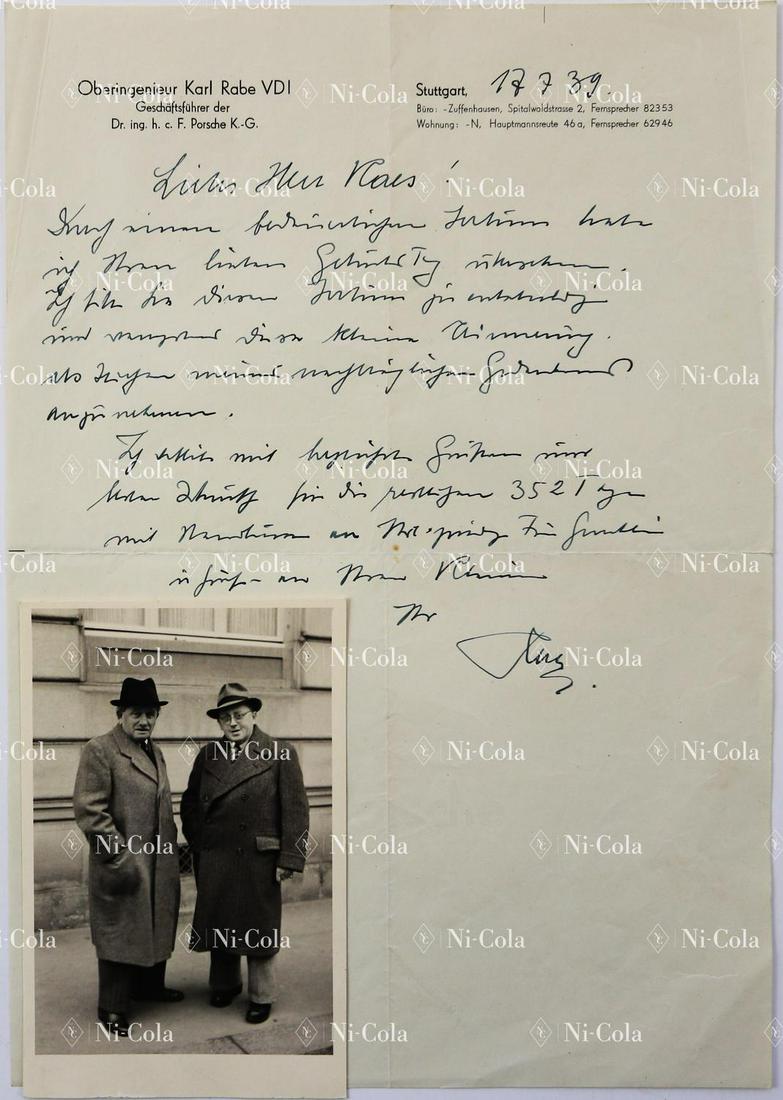 Oberingenieur Karl Rabe VDI
Geschäftsführer der
Dr. ing. h. c. F. Porsche K.-G.
Stuttgart, 17 7 39.
Büro: -Zuffenhausen, Spitalwaldstrasse 2, Fernsprecher 82353
Wohnung: -N, Hauptmannsreute 46a, Fernsprecher 62946
Lieber Herr Kaes!
Durch einen bedauerlichen Irrtum habe
ich Ihren lieben Geburts Tag übersehen.
Ich bitte Sie diesen Irrtum zu entschuldigen
und diese kleine Erinnerung
als Zeichen meines nachträglichen Gedenkens
anzunehmen.
Ich mit Grüßen und
für die restlichen 352 Tage
mit an Ihre Frau Gemahlin
u Grüße an Ihren Kleinen
Ihr
Ni-Cola